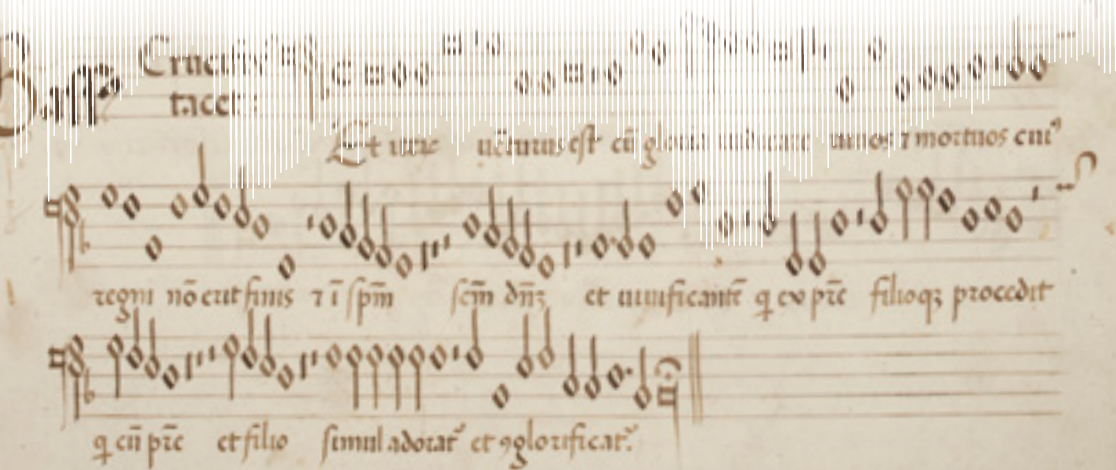 Bassus Crucifixus
tacet:
Et iterū uēturus est cū gloria iudicare uiuos ⁊ mortuos cuiꝰ
regni nō erit finis ⁊ ī sp̄m scm̄ dn̄ꝫ et uiuificantē q ex pr̄e filioqꝫ procedit
q cū pr̄e et filio simul adorat᷑ et ꝯglorificat᷑.